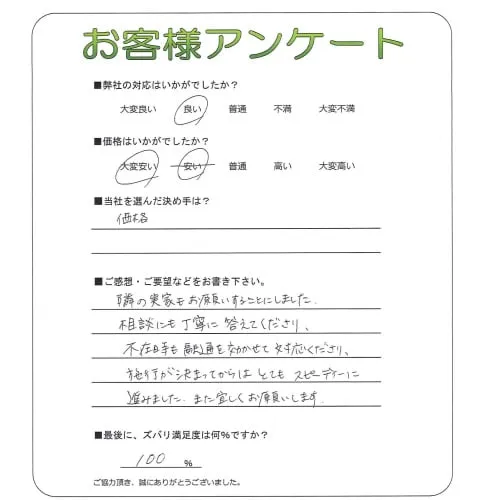 お客様アンケート
■弊社の対応はいかがでしたか？
大変良い 良い 普通 不満 大変不満
■価格はいかがでしたか？
大変安い 安い 普通 高い 大変高い
■当社を選んだ決め手は？
価格
■ご感想・ご要望などをお書き下さい。
隣の実家もお願いすることにしました.
相談にも丁寧に答えてくださり、
不在時も融通を効かせて対応くださり、
施行が決まってからはとてもスピーディーに
進みました. また宜しくお願いします.
■最後に、ズバリ満足度は何%ですか？
100 %
ご協力頂き、誠にありがとうございました。